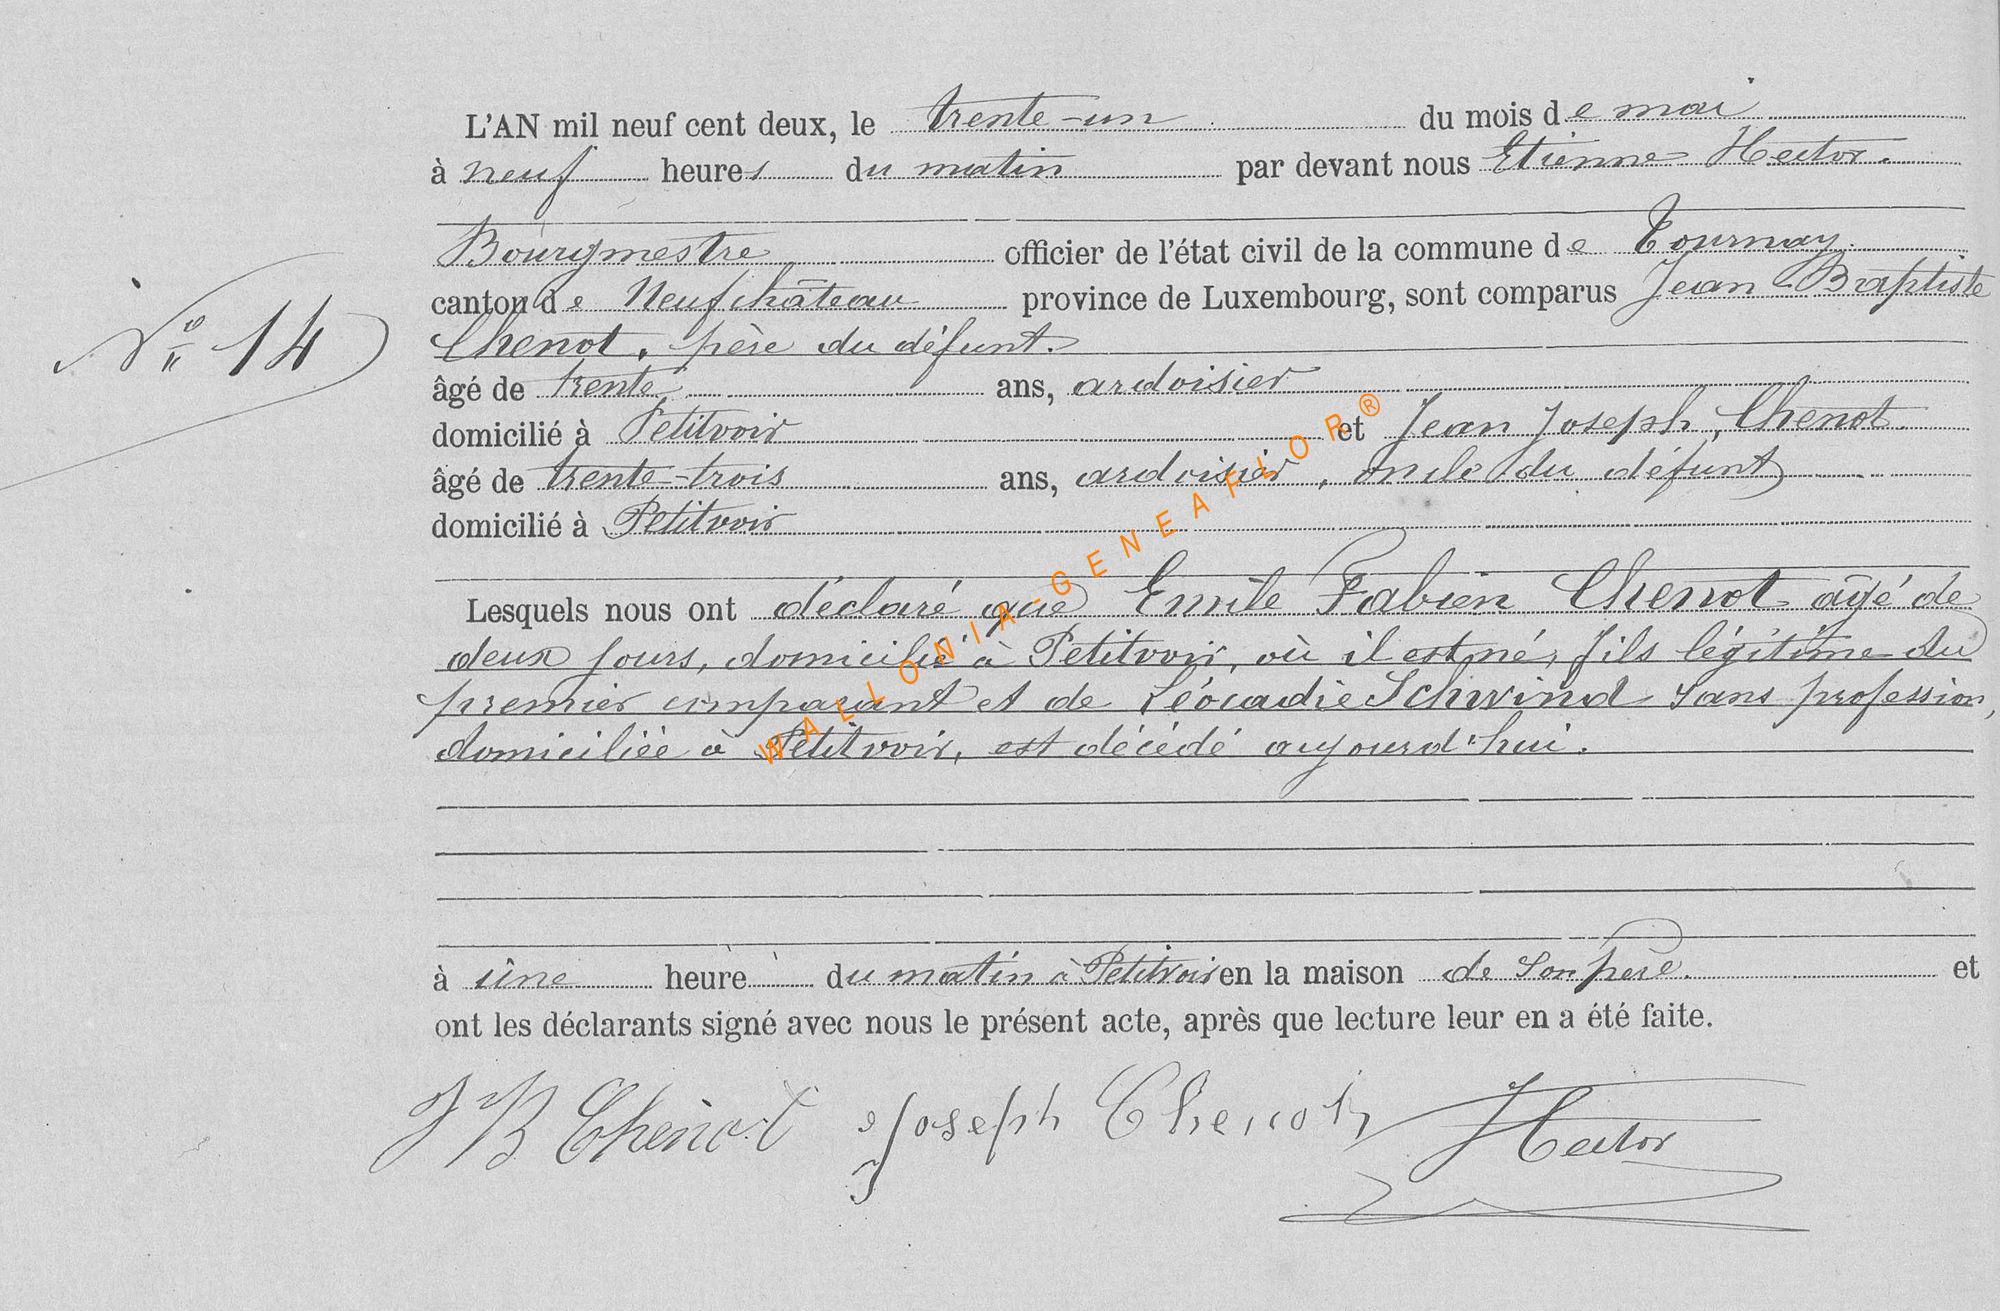 L'AN mil neuf cent deux, le trente-un du mois de mai
à neuf heures du matin par devant nous Etienne Hector.
Bourgmestre officier de l'état civil de la commune de Tournay.
canton de Neufchâteau province de Luxembourg, sont comparus Jean Baptiste
N° 14
Chenot, père du défunt.
âgé de trente ans, ardoisier
domicilié à Petitvoir et Jean Joseph, Chenot.
âgé de trente-trois ans, ardoisier, oncle du défunt
domicilié à Petitvoir
Lesquels nous ont déclaré que Emile Fabien Chenot âgé de
deux jours, domicilié à Petitvoir, où il est né, fils légitime du
premier comparant et de Léocadie Schwind sans profession,
domiciliée à Petitvoir, est décédé aujourd'hui.
à une heure du matin à Petitvoir en la maison de son père. et
ont les déclarants signé avec nous le présent acte, après que lecture leur en a été faite.
J B Chenot Joseph Chenot Hector
WALLONIA-GENEAFLOR®